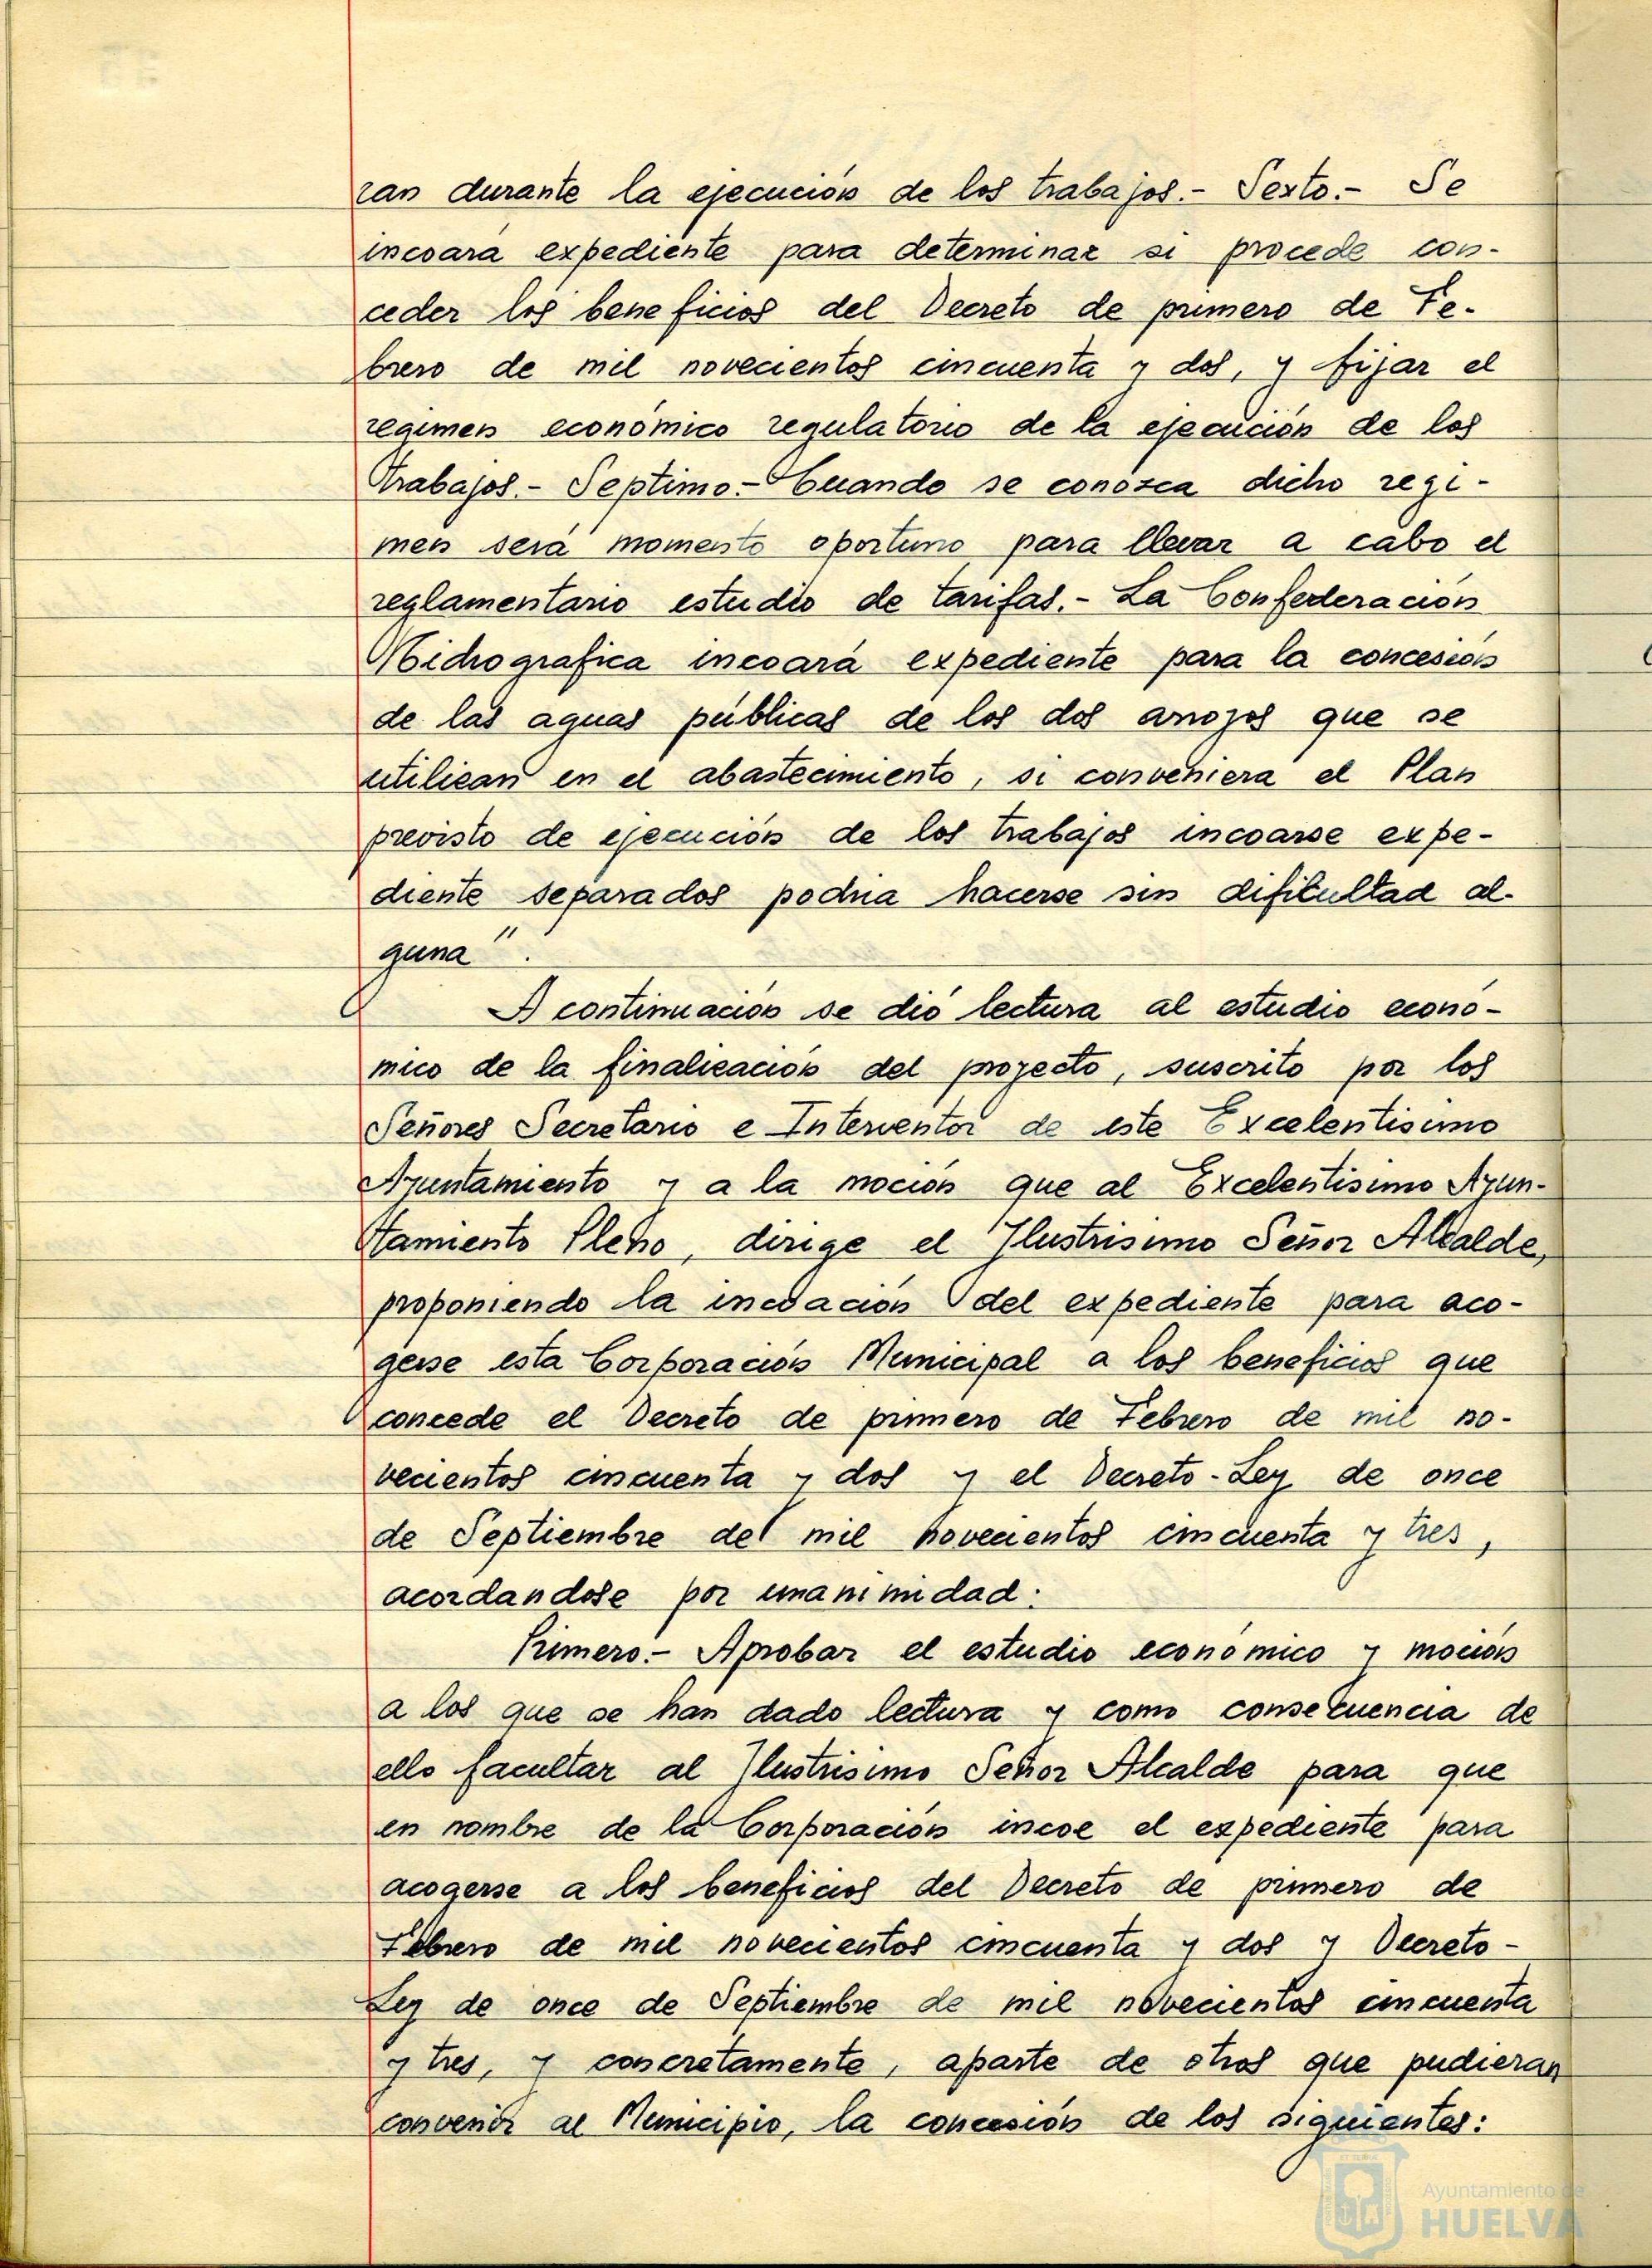 ran durante la ejecución de los trabajos.- Sexto.- Se
incoará expediente para determinar si procede con-
ceder los beneficios del Decreto de primero de Fe-
brero de mil novecientos cincuenta y dos, y fijar el
regimen económico regulatorio de la ejecución de los
trabajos.- Septimo.- Cuando se conozca dicho regi-
men será momento oportuno para llevar a cabo el
reglamentario estudio de tarifas.- La Confederación
Hidrografica incoará expediente para la concesión
de las aguas públicas de los dos arroyos que se
utilizan en el abastecimiento, si conveniera el Plan
previsto de ejecución de los trabajos incoarse expe-
diente separados podria hacerse sin dificultad al-
guna".
A continuación se dió lectura al estudio econó-
mico de la finalización del proyecto, suscrito por los
Señores Secretario e Interventor de este Excelentisimo
Ayuntamiento y a la moción que al Excelentisimo Ayun-
tamiento Pleno, dirige el Ilustrisimo Señor Alcalde,
proponiendo la incoación del expediente para aco-
gerse esta Corporación Municipal a los beneficios que
concede el Decreto de primero de Febrero de mil no-
vecientos cincuenta y dos y el Decreto-Ley de once
de Septiembre de mil novecientos cincuenta y tres,
acordandose por unanimidad:
Primero.- Aprobar el estudio económico y moción
a los que se han dado lectura y como consecuencia de
ello facultar al Ilustrisimo Señor Alcalde para que
en nombre de la Corporación incoe el expediente para
acogerse a los beneficios del Decreto de primero de
Febrero de mil novecientos cincuenta y dos y Decreto-
Ley de once de Septiembre de mil novecientos cincuenta
y tres, y concretamente, aparte de otros que pudieran
convenir al Municipio, la concesión de los siguientes:
Ayuntamiento de
HUELVA